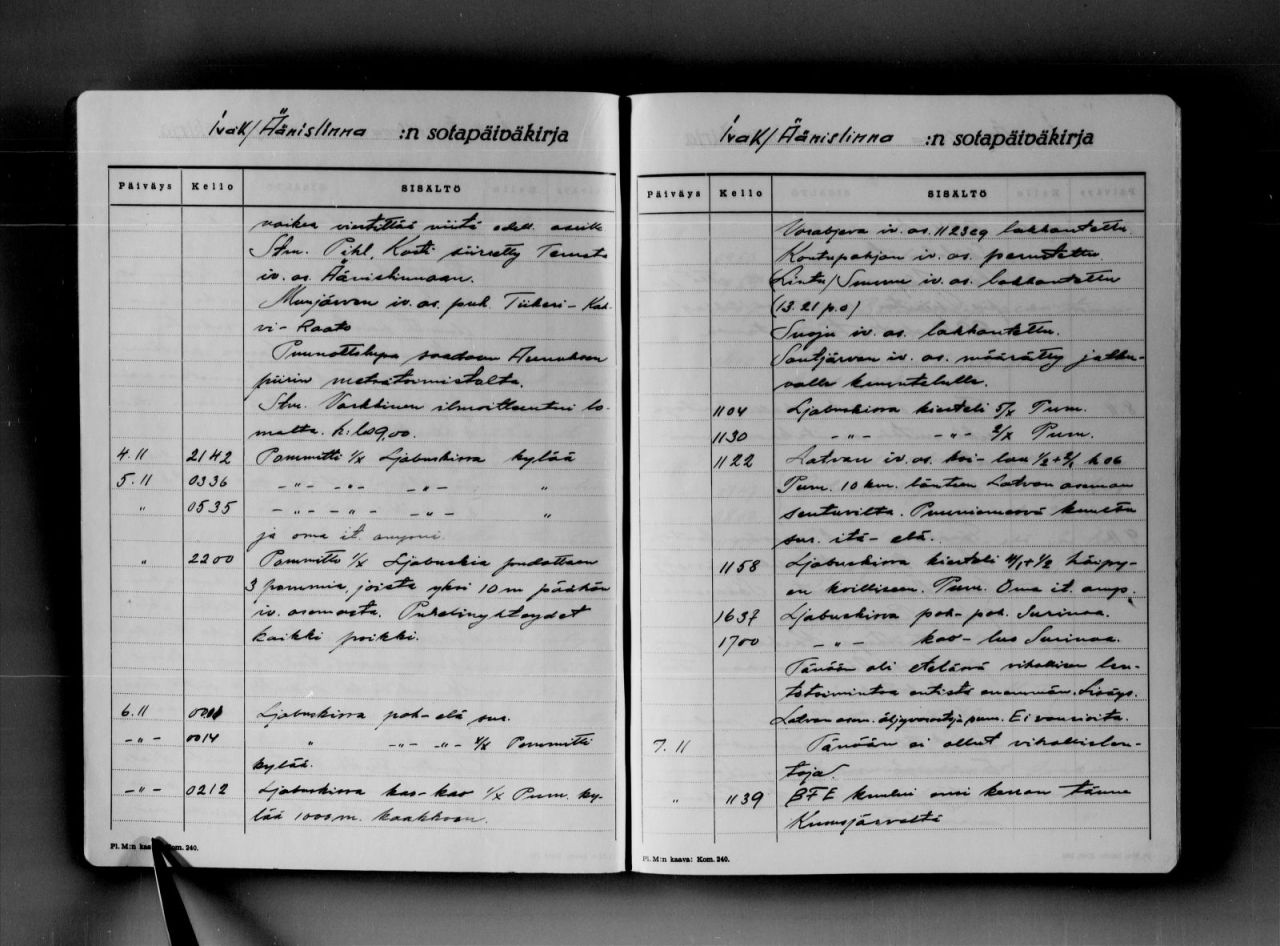 IvaK/Äänislinna :n sotapäiväkirja
Päiväys Kello SISÄLTÖ
vaikea viestittää niitä edell. asuille
Stm. Pihl, Kosti siirretty
iv. as. Äänislinnaan.
Munjärven iv. as. puh. Tiikeri-Kah-
vi-Raato
Puunottolupa saadaan Aunuksen
piirin metsätoimistolta.
Stm. Vaskkinen ilmoittautui lo-
malta. k:lo 9,00.
4.11 2142 Pommitti 1/x Ljabuskissa kylää
5.11 0336 -"- -"- -"- "
" 0535 -"- -"- -"- "
ja oma it. ampui.
" 2200 Pommitti 1/x Ljabuskia pudottaen
3 pommia, joista yksi 10 m päähän
iv. asemasta. Puhelinyhteydet
kaikki poikki.
6.11 Ljabuskissa poh-elä sur.
-"- 0014 " -"- -"- 4/x Pommitti
kylää.
-"- 0212 Ljabuskissa kas-kao 1/x Pum. ky-
lää 1000 m. kaakkoon.
Pl. M:n kaava: Kom. 240.
IvaK/Äänislinna :n sotapäiväkirja
Päiväys Kello SISÄLTÖ
iv. as. 1123eg lakkautettu.
Kontupohjan iv. as. perustettu
Lintu/Suurus iv. as. lakkautettu
(13.21 p.o)
Suoju iv. as. lakkautettu.
Soutjärven iv. as. määrätty jatku-
valle kuuntelulle.
1104 Ljabuskissa kierteli 5/x Pum.
1130 -"- -"- 2/x Pum.
1122 Latvan iv. as. koi-lou 1/2+2/1 k 06
Pum. 10 km. länteen Latvan aseman
seutuvilta. Puuniemessä kuultu
sur. itä-elä.
1158 Ljabuskissa kierteli 11/1+1/2 häipy-
en koilliseen. Pum. Oma it. amp.
1637 Ljabuskissa poh-poh. Surinaa.
1700 -"- kao-lus Surinaa.
Tänään oli etelässä vihollisen len-
totoimintaa entistä enemmän. Lisäys.
Latvan asem. öljyvarastoja pum. Ei vaurioita.
7.11 Tänään ei ollut vihollislen-
toja.
" 1139 BFE kuului ensi kerran tänne
Kuusjärveltä
Pl. M:n kaava: Kom. 240.